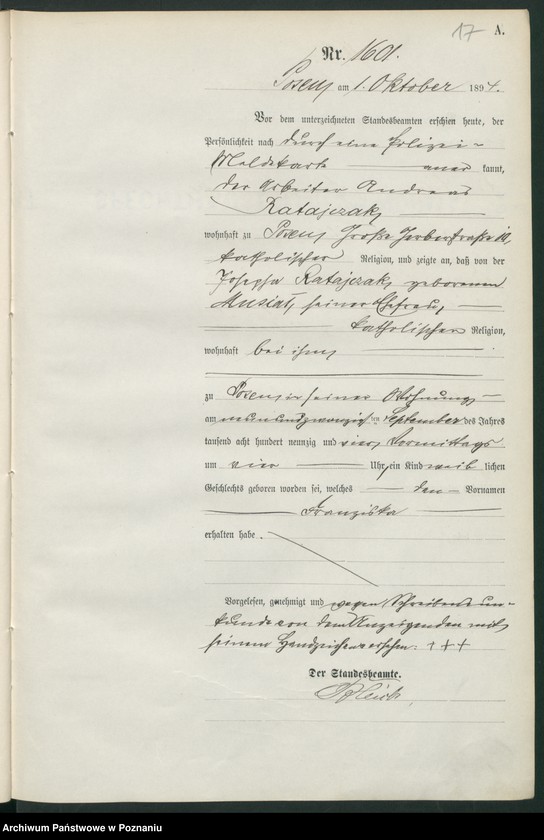 17 A.
Nr. 1601.
Posen am 1. Oktober 1894.
Vor dem unterzeichneten Standesbeamten erschien heute, der
Persönlichkeit nach durch eine Polizei-
Meldekarte anerkannt,
der Arbeiter Andreas
Ratajczak,
wohnhaft zu Posen, Große Gerberstraße
katholischer Religion, und zeigte an, daß von der
Josepha Ratajczak, geborenen
Musiał, seiner Ehefrau,
katholischer Religion,
wohnhaft bei ihm
zu Posen in seiner Wohnung
am neunundzwanzigsten September des Jahres
tausend acht hundert neunzig und vier, Vormittags
um vier Uhr, ein Kind weiblichen
Geschlechts geboren worden sei, welches den Vornamen
Franziska
erhalten habe.
Vorgelesen, genehmigt und wegen Schreibens un-
kunde von dem Anzeigenden mit
seinem Handzeichen versehen. +++
Der Standesbeamte.
Archiwum Państwowe w Poznaniu